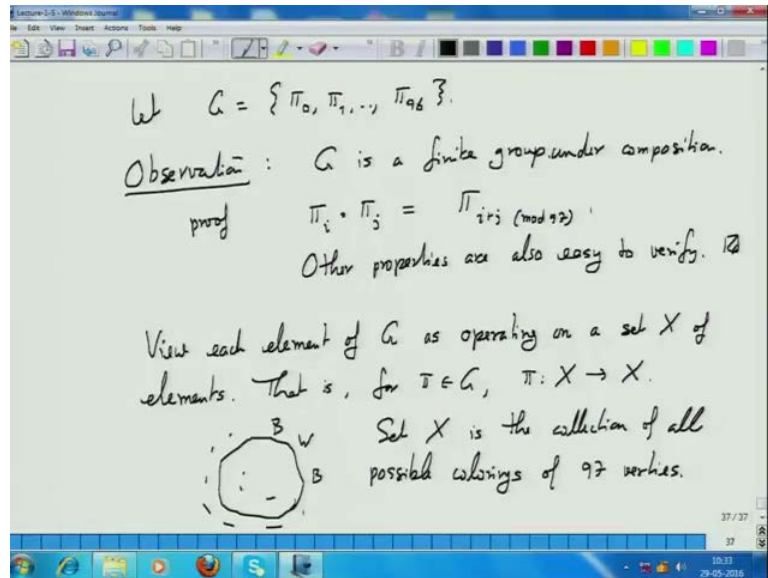 Lecture-1-5 - Windows Journal
Edit View Insert Actions Tools Help
Let G = { π₀, π₁, .., π₉₆ }.
Observation : G is a finite group under composition.
proof π_i · π_j = π_{i+j (mod 97)} .
Other properties are also easy to verify.
View each element of G as operating on a set X of
elements. That is, for π ∈ G, π: X → X.
B W B
Set X is the collection of all
possible colorings of 97 verties.
37 / 37
37
10:33
29-05-2016